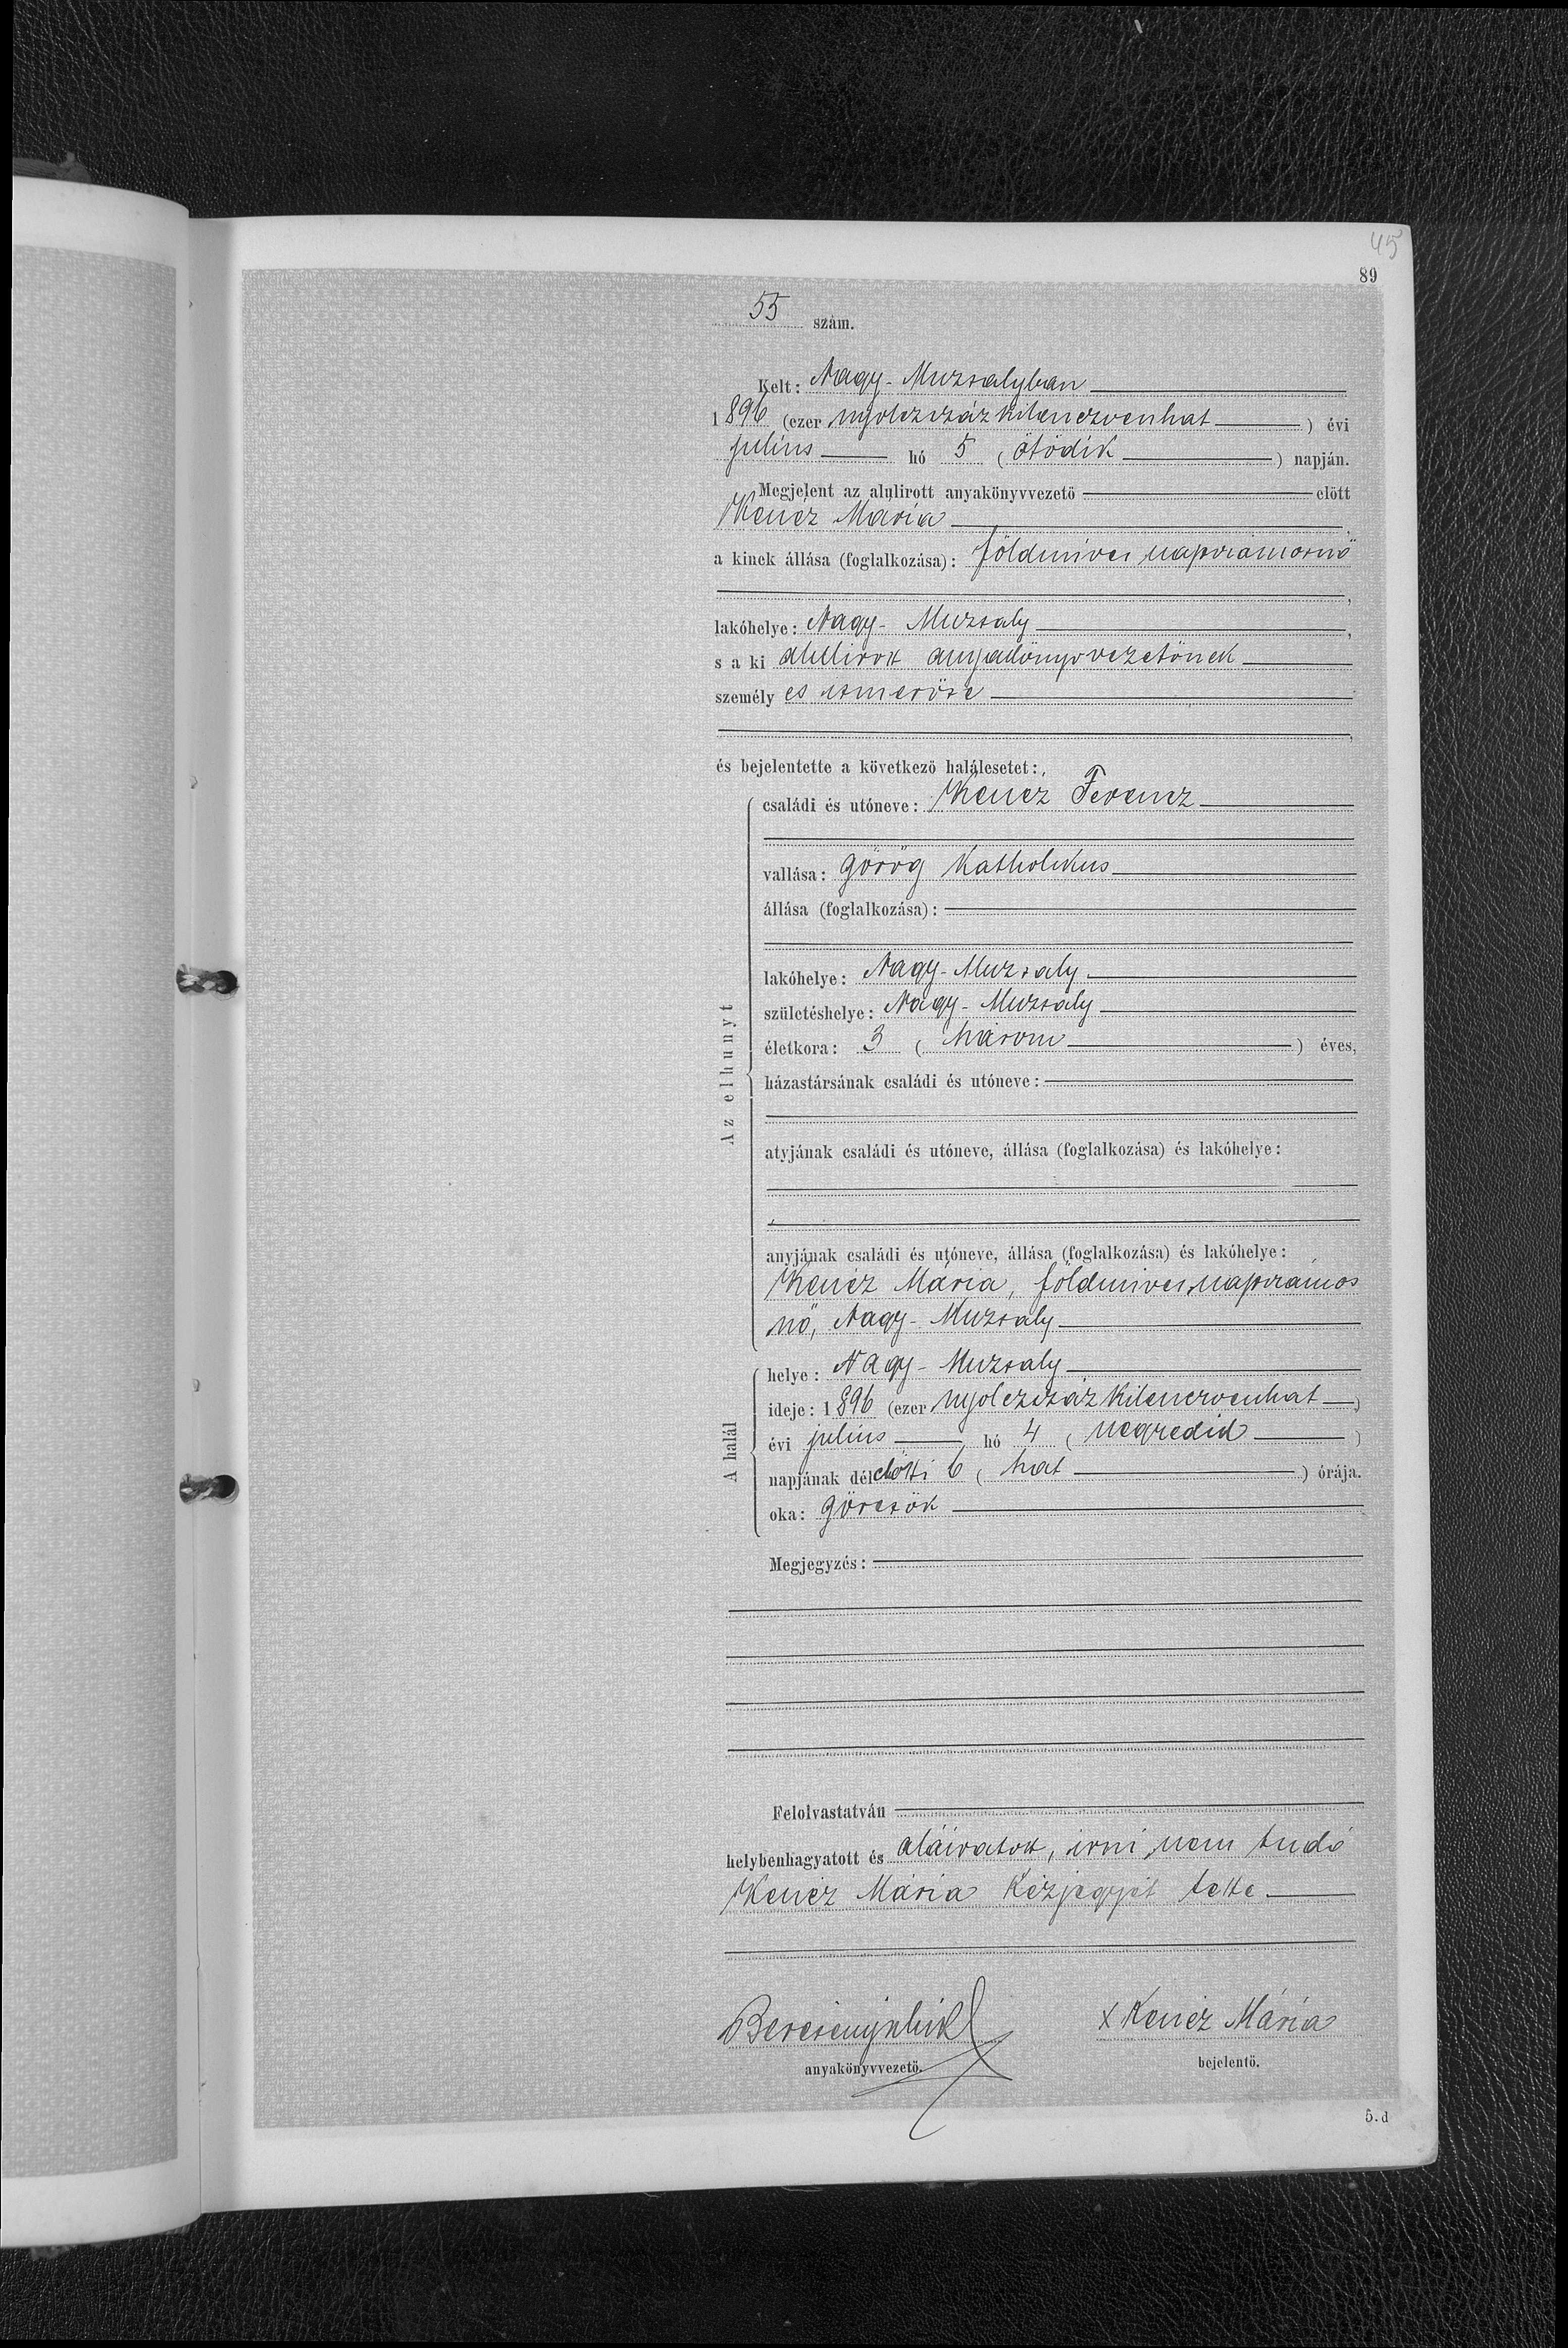 45
89
55 szám.
Kelt: Nagy-Muzsalyban
1896 (ezer nyolczszázkilenczvenhat) évi
julius hó 5 (ötödik) napján.
Megjelent az alulirott anyakönyvvezető előtt
Kenéz Mária,
a kinek állása (foglalkozása): földmives napszámosnő
,
lakóhelye: Nagy-Muzsaly,
s a ki alulirott anyakönyvvezetőnek
személyes ismerőse
,
és bejelentette a következő halálesetet:
Az elhunyt
családi és utóneve: Kenéz Ferencz
vallása: görög katholikus
állása (foglalkozása):
lakóhelye: Nagy-Muzsaly
születéshelye: Nagy-Muzsaly
életkora: 3 (három) éves,
házastársának családi és utóneve:
atyjának családi és utóneve, állása (foglalkozása) és lakóhelye:
anyjának családi és utóneve, állása (foglalkozása) és lakóhelye:
Kenéz Mária, földmives napszámos
nő, Nagy-Muzsaly
A halál
helye: Nagy-Muzsaly
ideje: 1896 (ezer nyolczszázkilenczvenhat)
évi julius hó 4 (negyedik)
napjának délelőtti 6 (hat) órája.
oka: görcsök
Megjegyzés:
Felolvastatván
helybenhagyatott és aláiratott, irni nem tudó
Kenéz Mária kézjegyét tette.
x Kenéz Mária
anyakönyvvezető.
bejelentő.
5.d